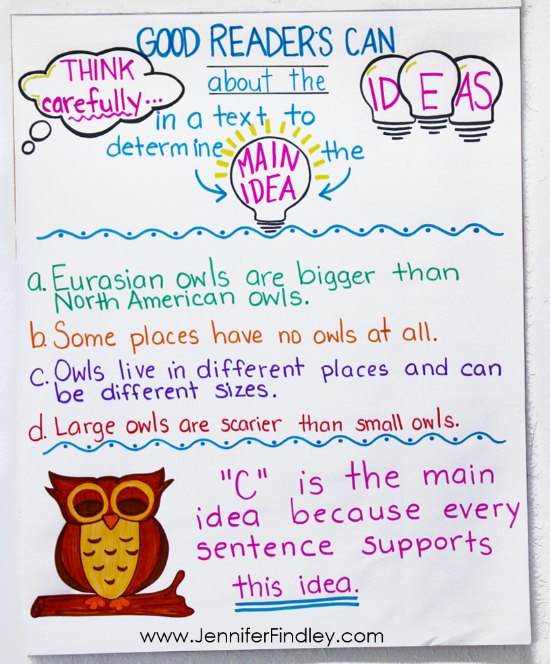 GOOD READERS CAN
THINK
carefully...
about the
IDEAS
in a text to
determine the
MAIN
IDEA
a. Eurasian owls are bigger than
North American owls.
b. Some places have no owls at all.
c. Owls live in different places and can
be different sizes.
d. Large owls are scarier than small owls.
"C" is the main
idea because every
sentence supports
this idea.
www.JenniferFindley.com